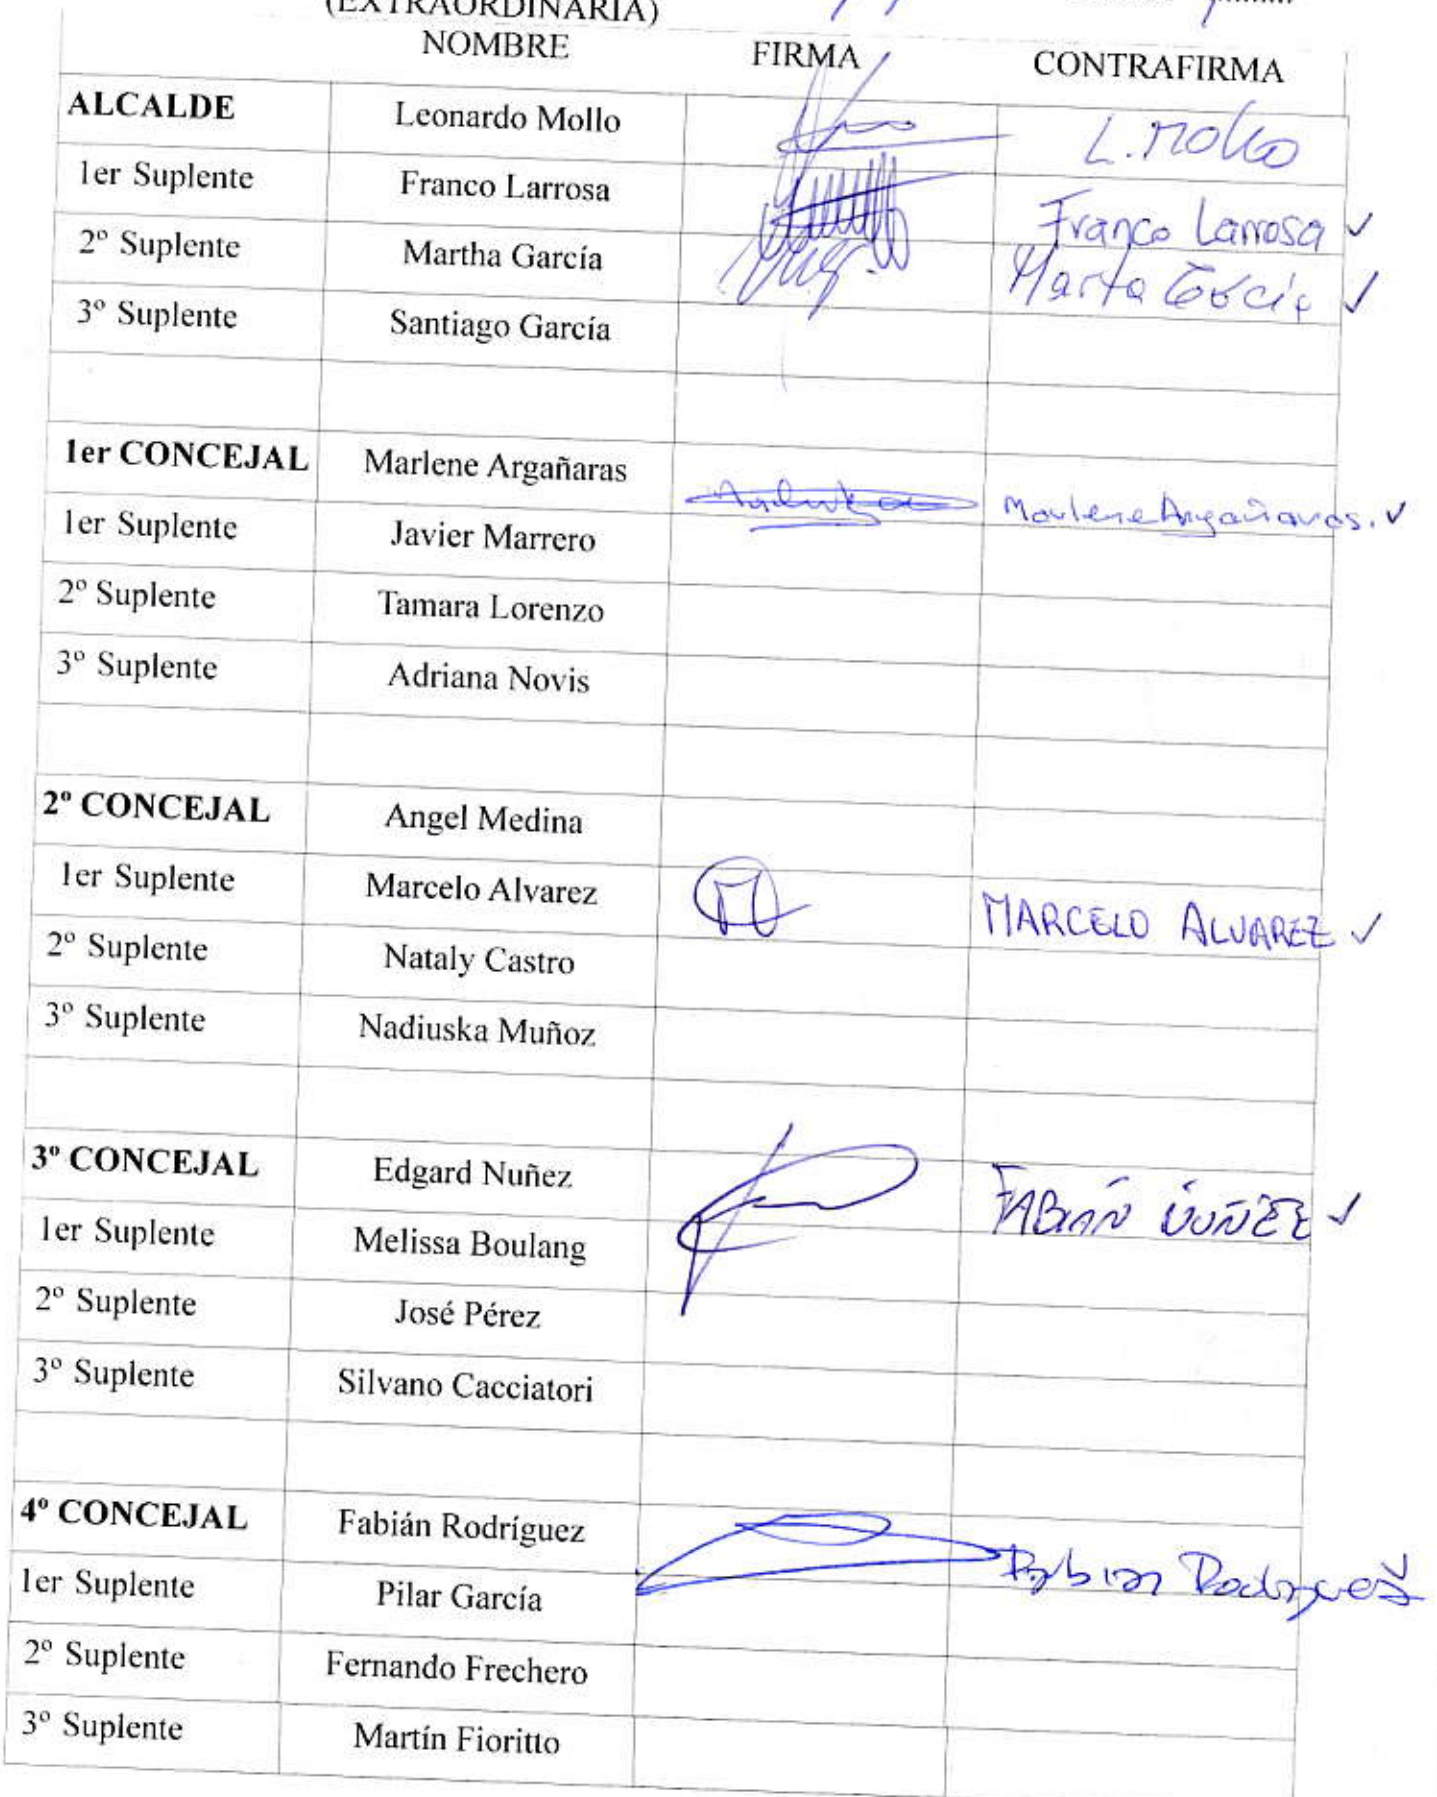 (EXTRAORDINARIA)
NOMBRE FIRMA CONTRAFIRMA
ALCALDE Leonardo Mollo L. Mollo
1er Suplente Franco Larrosa Franco Larrosa ✓
2º Suplente Martha García Marta García ✓
3º Suplente Santiago García
1er CONCEJAL Marlene Argañaras Marlene Argañaras. ✓
1er Suplente Javier Marrero
2º Suplente Tamara Lorenzo
3º Suplente Adriana Novis
2º CONCEJAL Angel Medina
1er Suplente Marcelo Alvarez MARCELO ALVAREZ ✓
2º Suplente Nataly Castro
3º Suplente Nadiuska Muñoz
3º CONCEJAL Edgard Nuñez FABIÁN NÚÑEZ ✓
1er Suplente Melissa Boulang
2º Suplente José Pérez
3º Suplente Silvano Cacciatori
4º CONCEJAL Fabián Rodríguez Fabian Rodriguez ✓
1er Suplente Pilar García
2º Suplente Fernando Frechero
3º Suplente Martín Fioritto